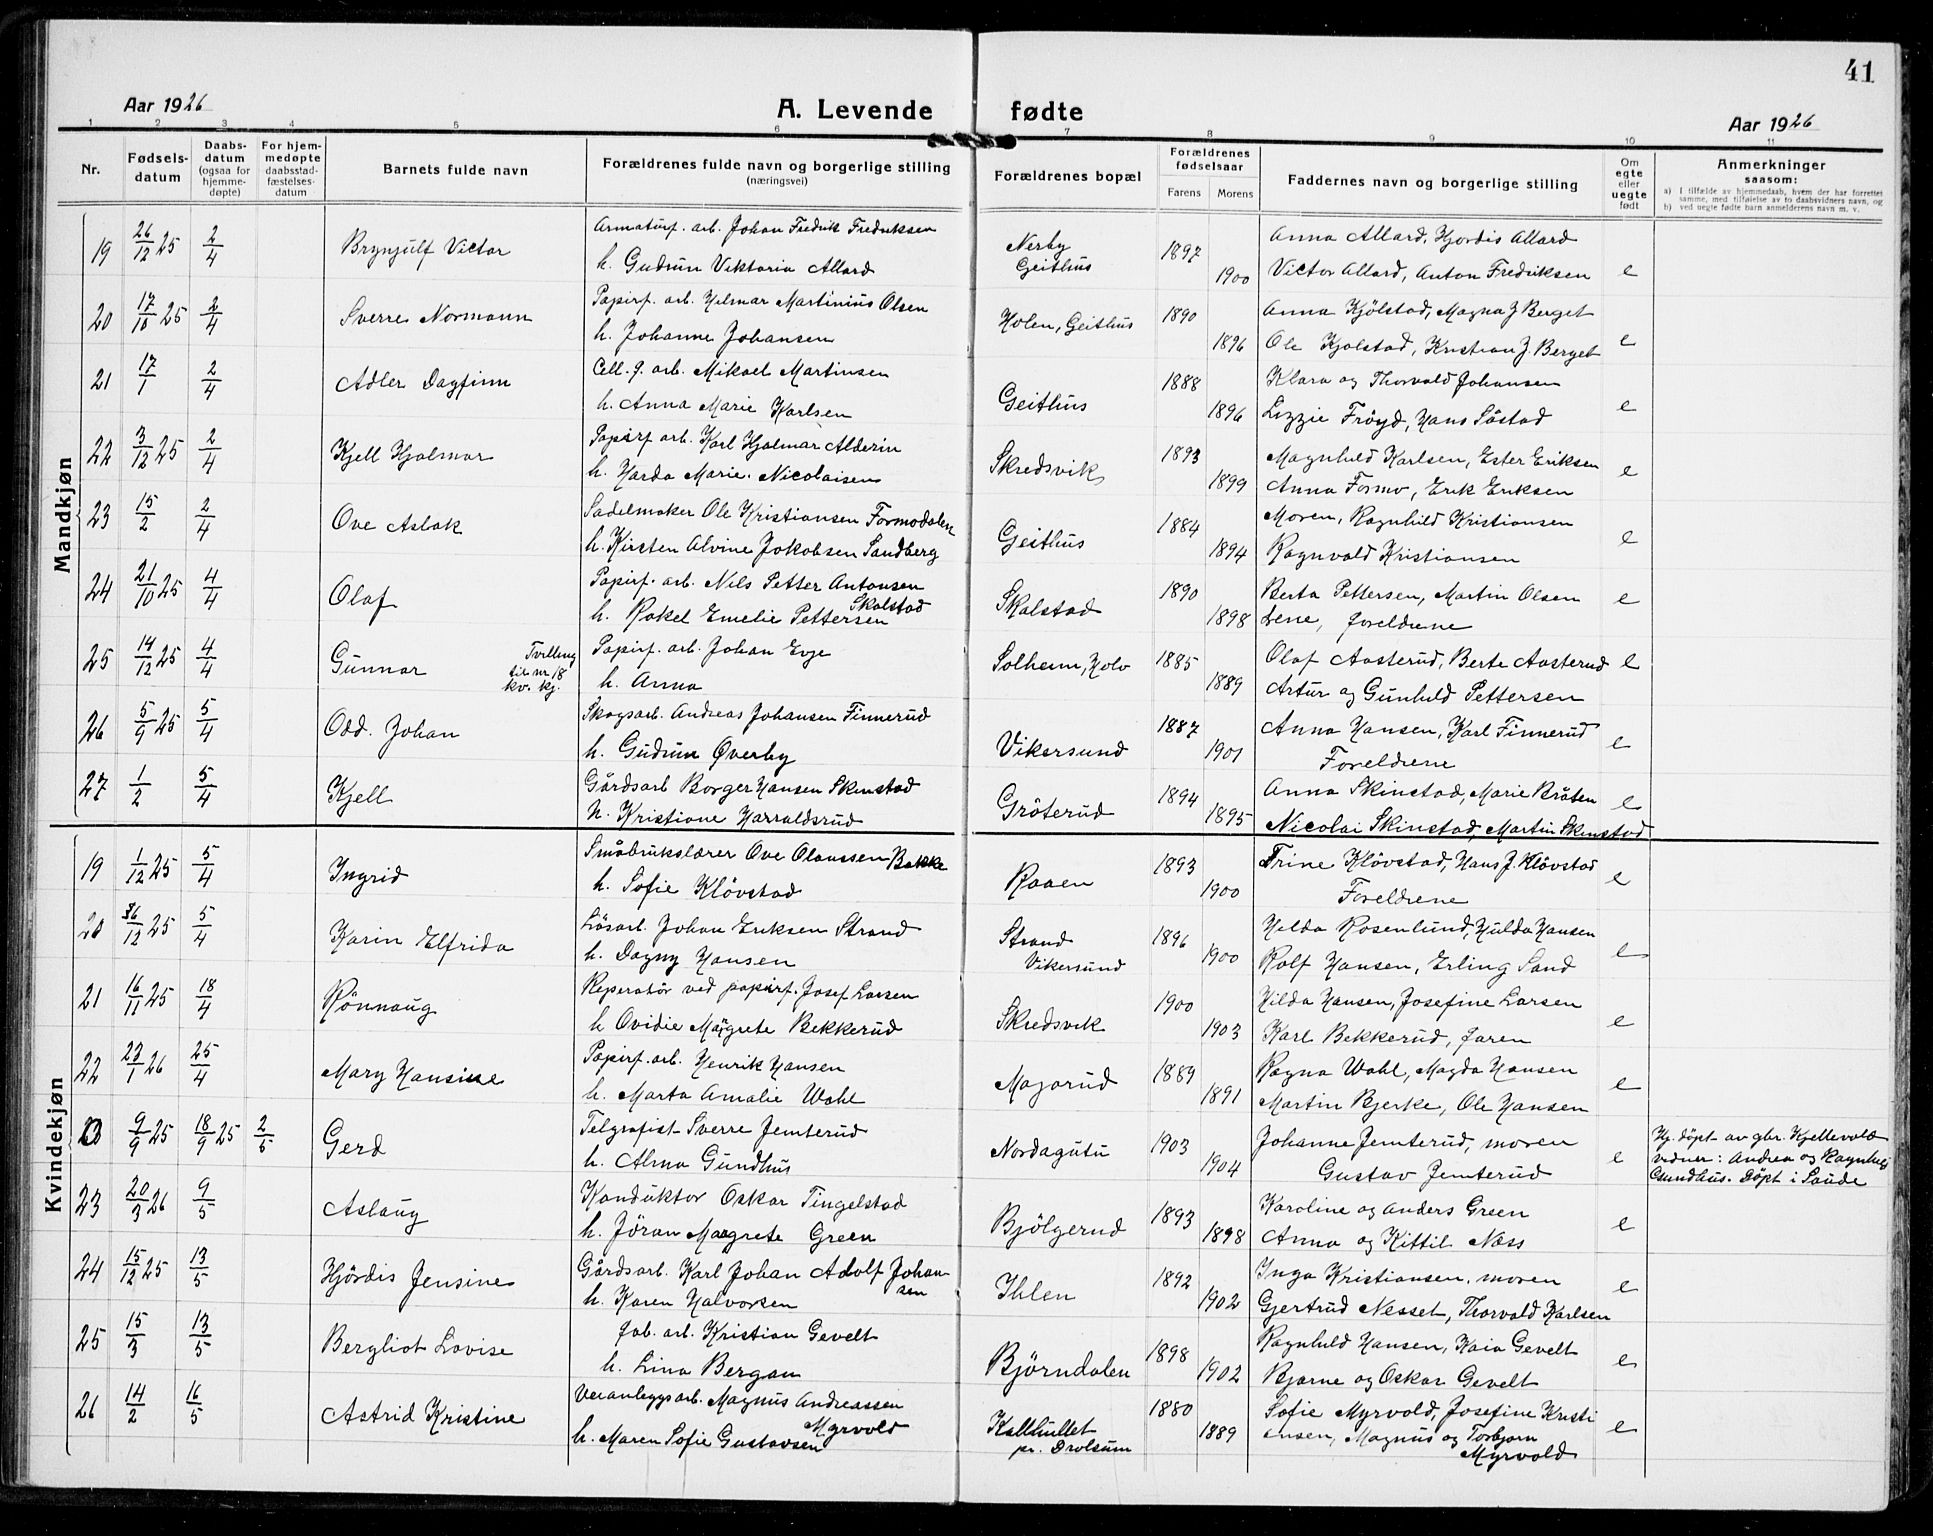 41
Aar 1926
A. Levende fødte
Aar 1926
1 2 3 4 5 6 7 8 9 10 11
Nr.
Fødsels-
datum
Daabs-
datum
(ogsaa for
hjemme-
døpte)
For hjem-
medøpte
daabsstad-
fæstelses-
datum
Barnets fulde navn
Forældrenes fulde navn og borgerlige stilling
(næringsvei)
Forældrenes bopæl
Forældrenes
fødselsaar
Farens Morens
Faddernes navn og borgerlige stilling
Om
egte
eller
uegte
født
Anmerkninger
saasom:
a) I tilfælde av hjemmedaab, hvem der har forrettet
samme, med tilføielse av to daabsvidners navn, og
b) ved uegte fødte barn anmelderens navn m. v.
Mandkjøn
19 26/12 25 2/4 Brynjulf Victor
Armaturf. arb. Johan Fredrik Fredriksen
h. Gudrun Viktoria Allard
Nerby
Geithus
1897 1900
Anna Allard, Hjordis Allard
Victor Allard, Anton Fredriksen e
20 17/10 25 2/4 Sverre Normann
Papirf. arb. Hilmar Martinius Olsen
h. Johanne Johansen
Holen, Geithus
1890 1896
Anna Kjölstad, Magna J Berget
Ole Kjolstad, Kristian J. Berget e
21 17/1 2/4 Adler Dagfinn
Cell. f. arb. Mikael Martinsen
h. Anna Marie Karlsen
Geithus
1888 1896
Klara og Thorvald Johansen
Lizzie Fröyd, Hans Söstad e
22 3/12 25 2/4 Kjell Hjalmar
Papirf arb. Karl Hjalmar Alderin
h. Harda Marie Nicolaisen
Skredsvik
1893 1899
Magnhild Karlsen, Ester Eriksen
Anna Formo, Erik Eriksen e
23 15/2 2/4 Ove Aslak
Sadelmaker Ole Kristiansen Formodalen
h. Kirsten Alvine Jakobsen Sandberg
Geithus
1884 1894
Moren, Ragnhild Kristiansen
Ragnvald Kristiansen e
24 21/10 25 4/4 Olaf
Papirf. arb. Nils Petter Antonsen
Skalstad
h. Rakel Emelie Pettersen
Skalstad
1890 1898
Berta Pettersen, Martin Olsen
Lene, foreldrene e
25 14/12 25 4/4 Gunnar
Tvilling
til nr 18
kv. kj.
Papirf. arb. Johan Evje
h. Anna
Solheim, Holv
1885 1889
Olaf Aasterud, Berte Aasterud
Artur og Gunhild Pettersen e
26 5/9 25 5/4 Odd. Johan
Skogsarb. Andreas Johansen Finnerud
h. Gudrun Øverby
Vikersund
1887 1901
Anna Hansen, Karl Finnerud
Foreldrene e
27 1/2 5/4 Kjell
Gårdsarb Borger Hansen Skinstad
h. Kristiane Harraldsrud
Gröterud
1894 1895
Anna Skinstad, Marie Bråten
Nicolai Skinstad, Martin Skinstad e
Kvindekjøn
19 1/12 25 5/4 Ingrid
Småbrukslærer Ove Olaussen Bakke
h. Sofie Klövstad
Raaen
1893 1900
Trine Klövstad, Hans J. Klövstad
Foreldrene e
20 26/12 25 5/4 Karin Elfrida
Lösarb. Johan Eriksen Strand
h. Dagny Hansen
Strand
Vikersund
1896 1900
Hilda Rosenlund, Hulda Hansen
Rolf Hansen, Erling Sand e
21 16/11 25 18/4 Rönnaug
Reperatör ved papirf. Josef Larsen
h Ovidie Margrete Bekkerud
Skredsvik
1900 1903
Hilda Hansen, Josefine Larsen
Karl Bekkerud, faren e
22 23/1 26 25/4 Mary Hansine
Papirf. arb. Henrik Hansen
h. Marta Amalie Wahl
Magarud
1889 1891
Ragna Wahl, Magda Hansen
Martin Bjerke, Ole Hansen e
9/9 25 18/9 25 2/5 Gerd
Telgrafist Sverre Jemterud
h. Alma Gundhus
Nordagutu
1903 1904
Johanne Jemterud, moren
Gustav Jemterud e
Hj. döpt av gbr. Kjellevold
vidner: Andrea og Ragnhild
Gundhus. Döpt i Saude
23 20/3 26 9/5 Aslaug
Konduktor Oskar Tingelstad
h. Jöran Magrete Green
Bjölgerud
1893 1898
Karoline og Anders Green
Anna og Kittil Næss e
24 15/12 25 13/5 Hjördis Jensine
Gårdsarb. Karl Johan Adolf Johan-
sen
h. Karen Halvorsen
Ihlen
1892 1902
Inga Kristiansen, moren
Gjertrud Nesset, Thorvald Karlsen e
25 15/3 13/5 Bergliot Lovise
fab. arb. Kristian Gevelt
h. Lina Bergan
Björndalen
1898 1902
Ragnhild Hansen, Kaia Gevelt
Bjarne og Oskar Gevelt e
26 14/2 16/5 Astrid Kristine
Veranleggsarb. Magnus Andreassen
Myrvold
h. Maren Sofie Gustavsen
Kallhullet
pr. Drolsum
1880 1889
Sofie Myrvold, Josefine Kristi
ansen, Magnus og Torbjørn
Myrvold e